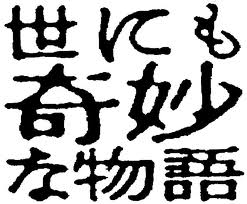 世にも
奇妙
な物語